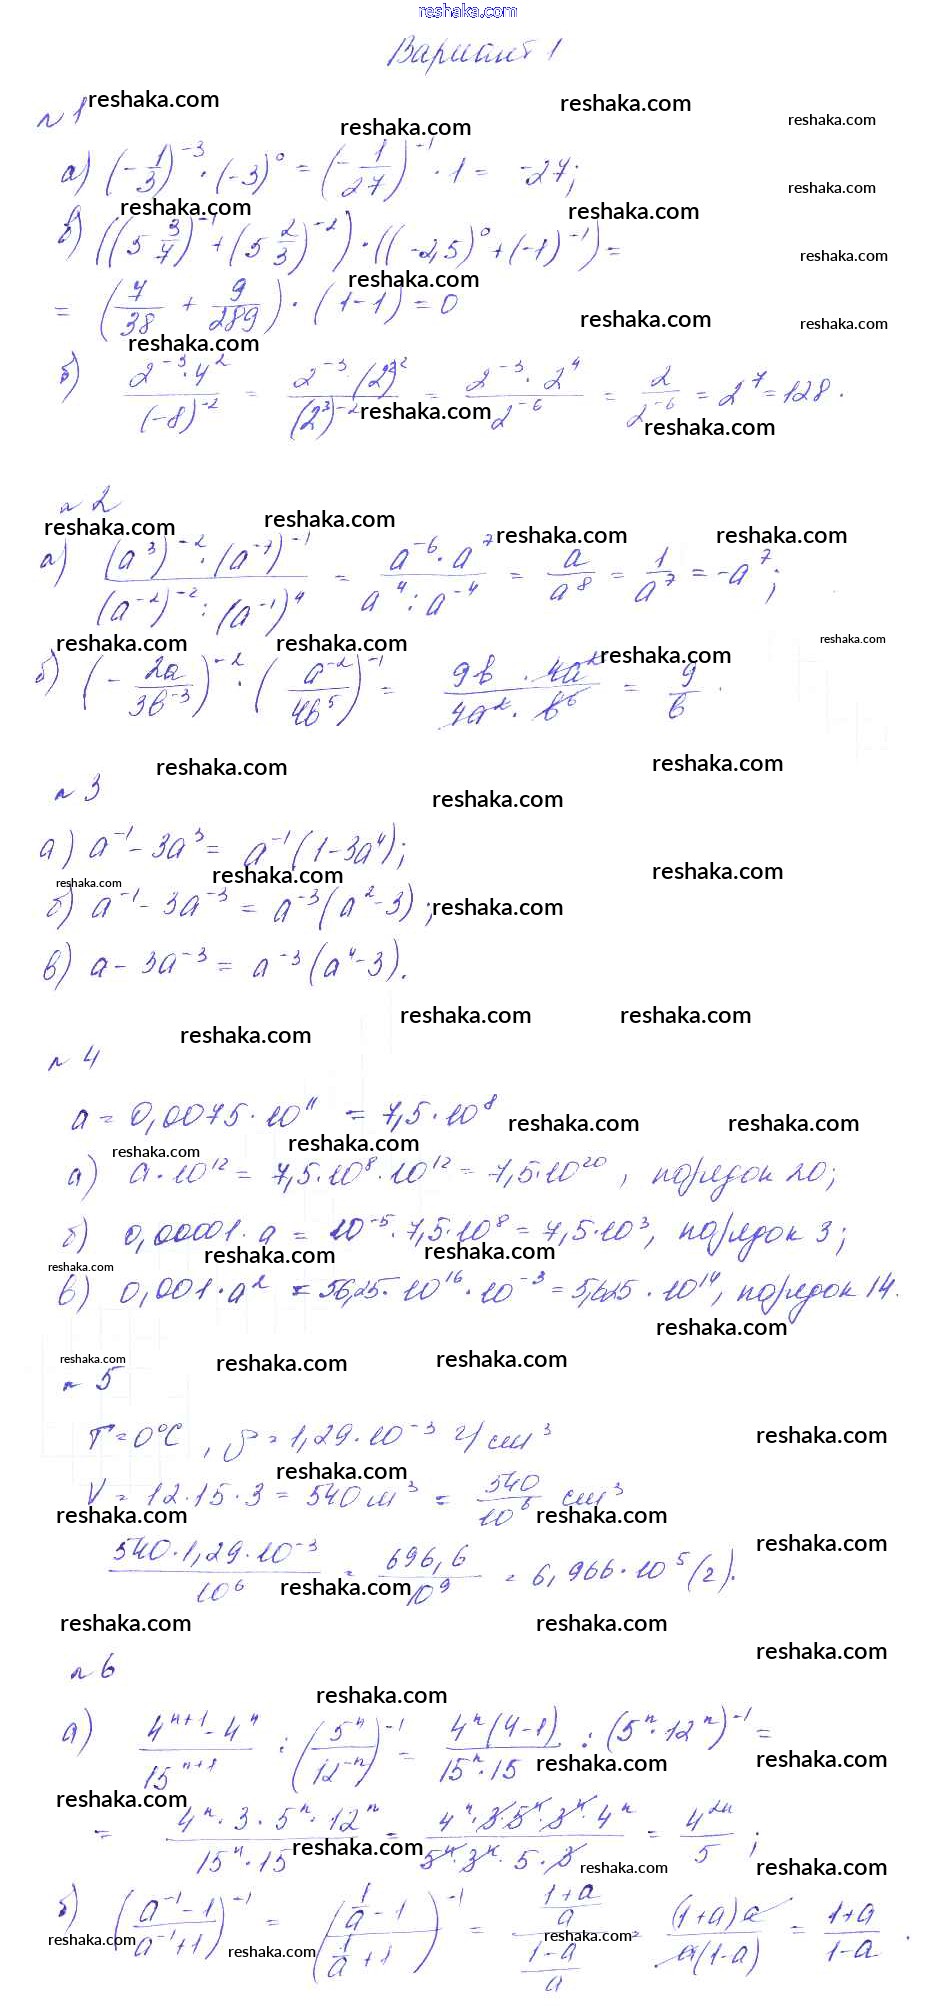 reshaka.com
Вариант 1
№ 1
а) (-1/3)^-3 · (-3)^0 = (-1/27)^-1 · 1 = -27;
в) ((5 3/7)^-1 + (5 2/3)^-2) · ((-2,5)^0 + (-1)^-1) =
= (7/38 + 9/289) · (1-1) = 0
б) 2^-3 · 4^2 / (-8)^-2 = 2^-3 · (2^2)^2 / (2^3)^-2 = 2^-3 · 2^4 / 2^-6 = 2 / 2^-6 = 2^7 = 128.
№ 2
а) (a^3)^-2 · (a^-7)^-1 / (a^-2)^-2 : (a^-1)^4 = a^-6 · a^7 / a^4 : a^-4 = a / a^8 = 1 / a^7 = -a^7;
б) (- 2a / 3b^-3)^-2 · (a^-2 / 4b^5)^-1 = 9b · 4a^2 / 4a^2 · b^6 = 9 / b.
№ 3
а) a^-1 - 3a^3 = a^-1 (1-3a^4);
б) a^-1 - 3a^-3 = a^-3 (a^2-3);
в) a - 3a^-3 = a^-3 (a^4-3).
№ 4
a = 0,0075 · 10^11 = 7,5 · 10^8
а) a · 10^12 = 7,5 · 10^8 · 10^12 = 7,5 · 10^20, порядок 20;
б) 0,00001 · a = 10^-5 · 7,5 · 10^8 = 7,5 · 10^3, порядок 3;
в) 0,001 · a^2 = 56,25 · 10^16 · 10^-3 = 5,625 · 10^14, порядок 14.
№ 5
T = 0°C, ρ = 1,29 · 10^-3 г/см^3
V = 12 · 15 · 3 = 540 м^3 = 540 / 10^6 см^3
540 · 1,29 · 10^-3 / 10^6 = 696,6 / 10^9 = 6,966 · 10^5 (г).
№ 6
а) 4^n+1 - 4^n / 15^n+1 : (5^n / 12^-n)^-1 = 4^n (4-1) / 15^n · 15 : (5^n · 12^n)^-1 =
= 4^n · 3 · 5^n · 12^n / 15^n · 15 = 4^n · 3 · 5^n · 3^n · 4^n / 5^n · 3^n · 5 · 3 = 4^2n / 5;
б) (a^-1 - 1 / a^-1 + 1)^-1 = (1/a - 1 / 1/a + 1)^-1 = 1+a/a / 1-a/a = (1+a)a / a(1-a) = 1+a / 1-a.